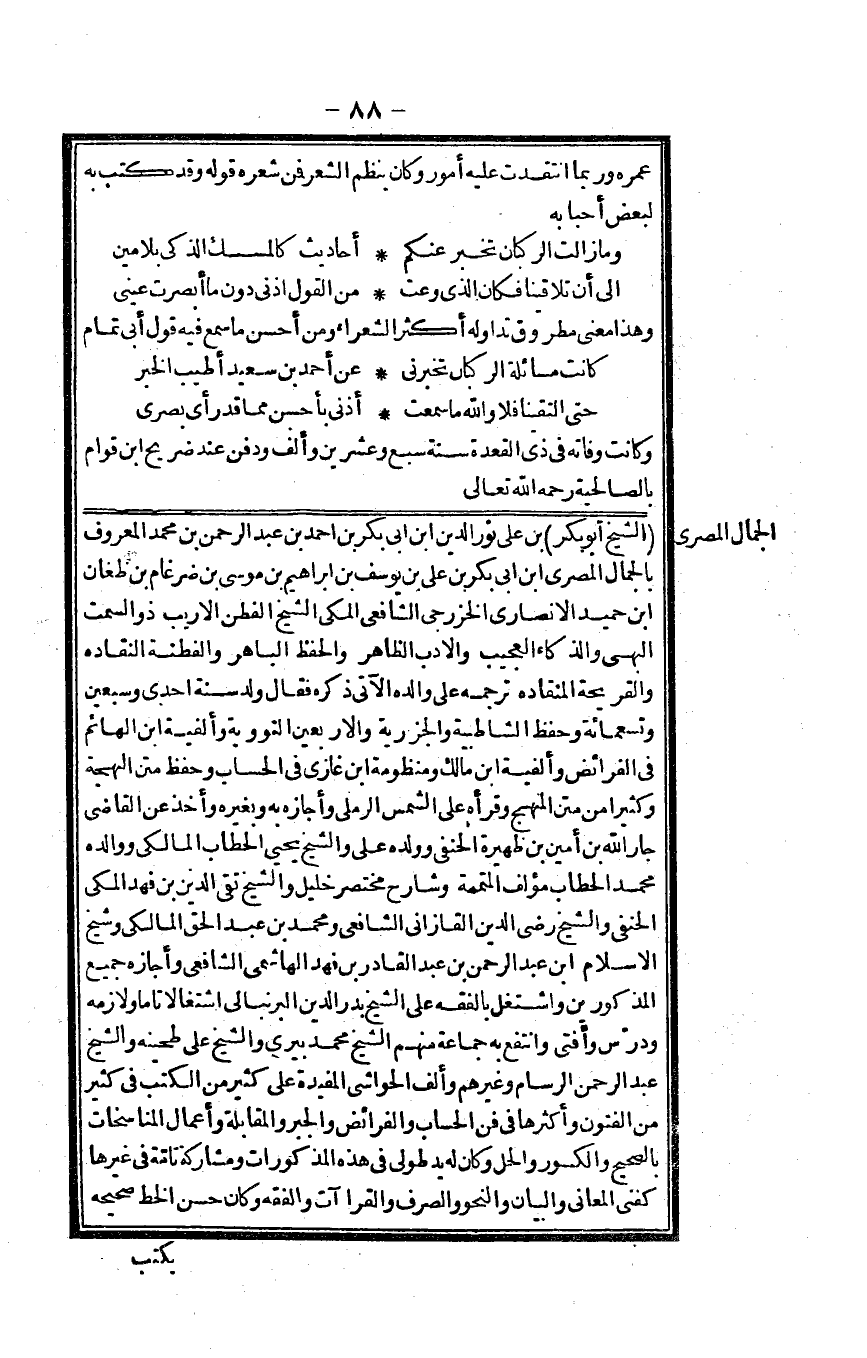 - ٨٨ -
عمره وربما انتقدت عليه أمور وكان ينظم الشعر فن شعره قوله وقد كتب به
لبعض أحبابه
ومازالت الركان تخبر عنكم * أحاديث كالمسك الذكى بلامين
الى أن تلاقينا فكان الذى وعت * من القول اذنى دون ما أبصرت عينى
وهذا معنى مطروق تداوله أكثر الشعراء ومن أحسن ما سمع فيه قول أبى تمام
كانت مسائلة الركان تخبرنى * عن أحمد بن سعيد أطيب الخبر
حتى التقينا فلا والله ما سمعت * أذنى بأحسن مما قد رأى بصرى
وكانت وفاته فى ذى القعدة سنة سبع وعشرين وألف ودفن عند ضريح ابن قوام
بالصالحية رحمه الله تعالى
الجمال المصرى
(الشيخ أبو بكر) بن على نور الدين ابن ابى بكر بن احمد بن عبد الرحمن بن محمد المعروف
بالجمال المصرى ابن ابى بكر بن على بن يوسف بن ابراهيم بن موسى بن ضرغام بن طعان
ابن حميد الانصارى الخزرجى الشافعى المكى الشيخ الفطن الاريب ذو السمت
البهى والذكاء العجيب والادب الظاهر والحفظ الباهر والفطنة النقاده
والقريحة المنقاده ترجمه على والده الآتى ذكره فقال ولد سنة احدى وسبعين
وتسعمائة وحفظ الشاطبية والجزرية والاربعين النووية وألفية ابن الهائم
فى الفرائض وألفية ابن مالك ومنظومة ابن غازى فى الحساب وحفظ متن البهجة
وكثيرا من متن المنهج وقرأه على الشمس الرملى وأجازه به وبغيره وأخذ عن القاضى
جار الله بن أمين بن ظهيرة الحنفى وولده على والشيخ يحيى الحطاب المالكى ووالده
محمد الحطاب مؤلف المتممة وشارح مختصر خليل والشيخ تقى الدين بن فهد المكى
الحنفى والشيخ رضى الدين القازانى الشافعى ومحمد بن عبد الحق المالكى وشيخ
الاسلام ابن عبد الرحمن بن عبد القادر بن فهد الهاشمى الشافعى وأجازه جميع
المذكورين واشتغل بالفقه على الشيخ بدر الدين البرنبالى اشتغالا تاما ولازمه
ودرّس وأفتى وانتفع به جماعة منهم الشيخ محمد بيرى والشيخ على طحينه والشيخ
عبد الرحمن الرسام وغيرهم وألف الحواشى المفيدة على كثير من الكتب فى كثير
من الفنون وأكثرها فى فن الحساب والفرائض والجبر والمقابلة وأعمال المناسخات
بالصحيح والكسور والحل وكان له يد طولى فى هذه المذكورات ومشاركة تامة فى غيرها
كفنى المعانى والبيان والنحو والصرف والقراآت والفقه وكان حسن الخط صحيحه
يكتب